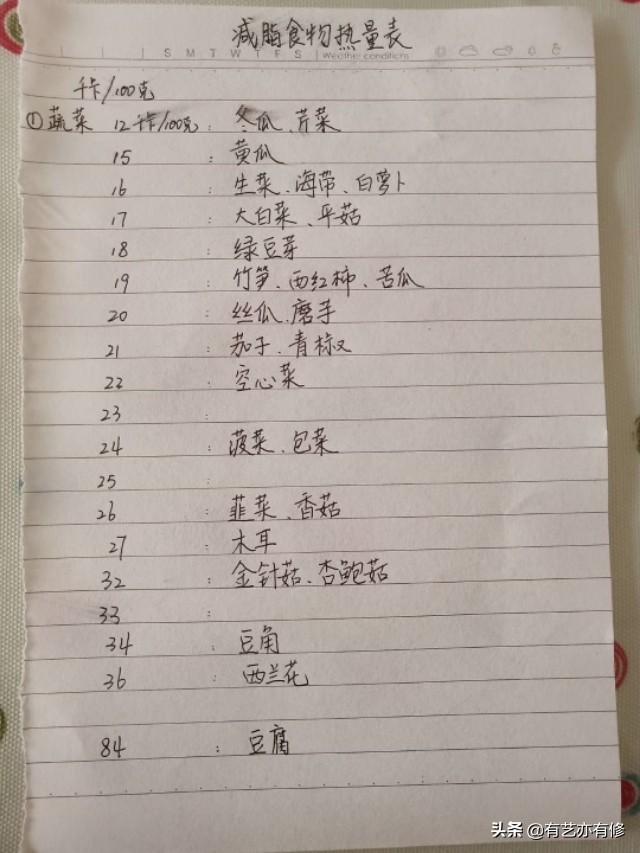 减脂食物热量表
S M T W T F S Weather conditions
千卡/100克
①蔬菜 12千卡/100克: 冬瓜、芹菜
15 : 黄瓜
16 : 生菜、海带、白萝卜
17 : 大白菜、平菇
18 : 绿豆芽
19 : 竹笋、西红柿、苦瓜
20 : 丝瓜、磨芋
21 : 茄子、青椒
22 : 空心菜
23 :
24 : 菠菜、包菜
25 :
26 : 韭菜、香菇
27 : 木耳
32 : 金针菇、杏鲍菇
33 :
34 : 豆角
36 : 西兰花
84 : 豆腐
头条 @有艺亦有修